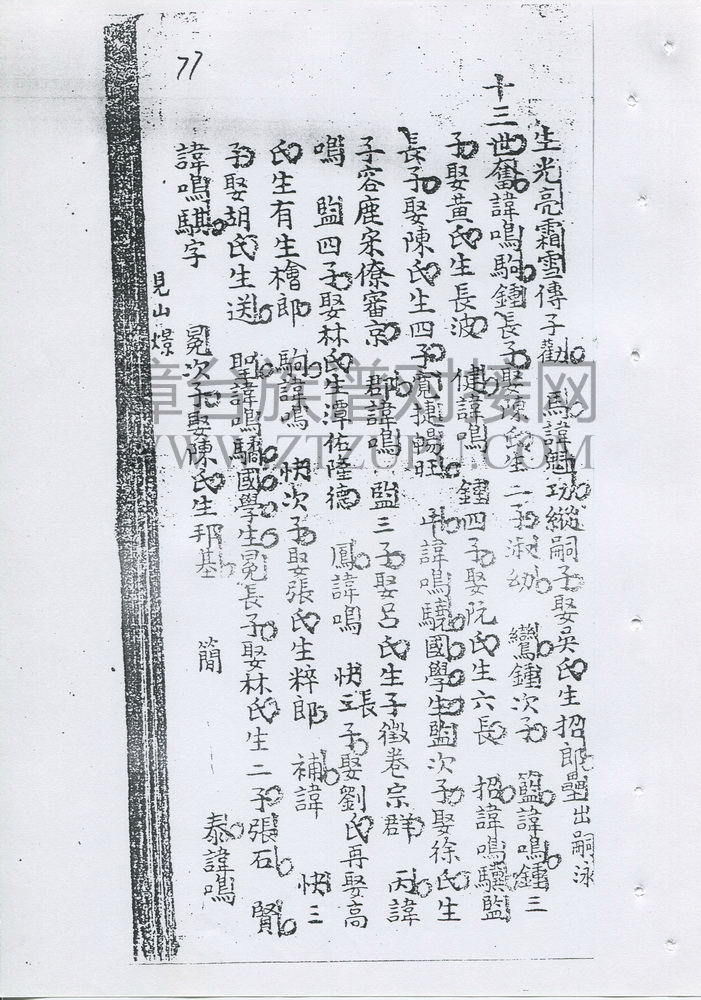 生光亮霜雪傳子勸 馬諱魁玏縱嗣子娶吳氏生招郎壘出嗣泳
十三世奮諱鳴駒鍾長子娶陳氏生二子淑幼 鸞鍾次子 籃諱鳴鍾三
子娶黃氏生長波 健諱鳴 鍾四子娶阮氏生六長 招諱鳴驥監
長子娶陳氏生四子寬捷暢旺 平諱鳴驍國學生監次子娶徐氏生
子容鹿宋僚審京 郡諱鳴 監三子娶呂氏生子徵卷宗群 丙諱
鳴 監四子娶林氏生潭佑隆德 鳳諱鳴 快長三子娶劉氏再娶高
氏生有生檜郎 駒諱鳴 快次子娶張氏生粹郎 補諱 快三
子娶胡氏生送 聖諱鳴驕國學生冕長子娶林氏生二子張石 賢
諱鳴騏字見山㷡 冕次子娶陳氏生邦基 簡 泰諱鳴
77
章台族譜对接网
WWW.ZTZUPU.COM